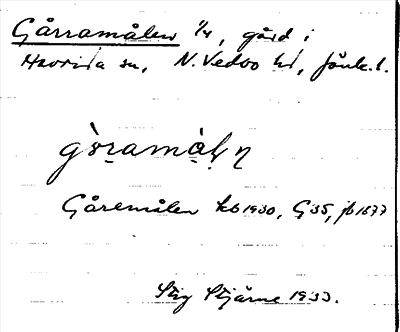 Gårramålen 1/4, gård i
Havrida sn, N. Vedbo hd, Jönk. l.
gòramàḷṇ
Gåremålen kb 1930, G 35, jb 1677
Stig Stjärne 1933.